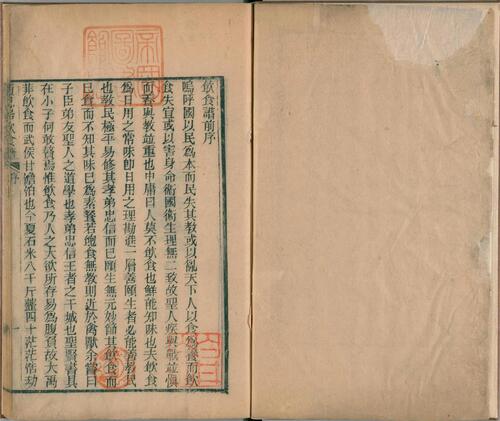 飲食譜前序
嗚呼國以民為本而民失其教或以亂天下人以食為養而飲
食失宜或以害身命衛國衛生理無二致故聖人疾與戰並慎
而養與教並重也中庸曰人莫不飲食也鮮能知味也夫飲食
為日用之常味即日用之理勘進一層善頤生者必能善教民
也教民極平易修其孝弟忠信而已頤生無元妙節其飲食而
已食而不知其味已為素餐若飽食無教則近於禽獸余嘗曰
子臣弟友聖人之道學也孝弟忠信王者之干城也聖賢書具
在小子何敢贅焉惟飲食乃人之大欲所存易為腹負故大禹
菲飲食而武侯甘澹泊也今夏石米八千斤虀四十茫茫浩劫
飲食
序
帝國圖